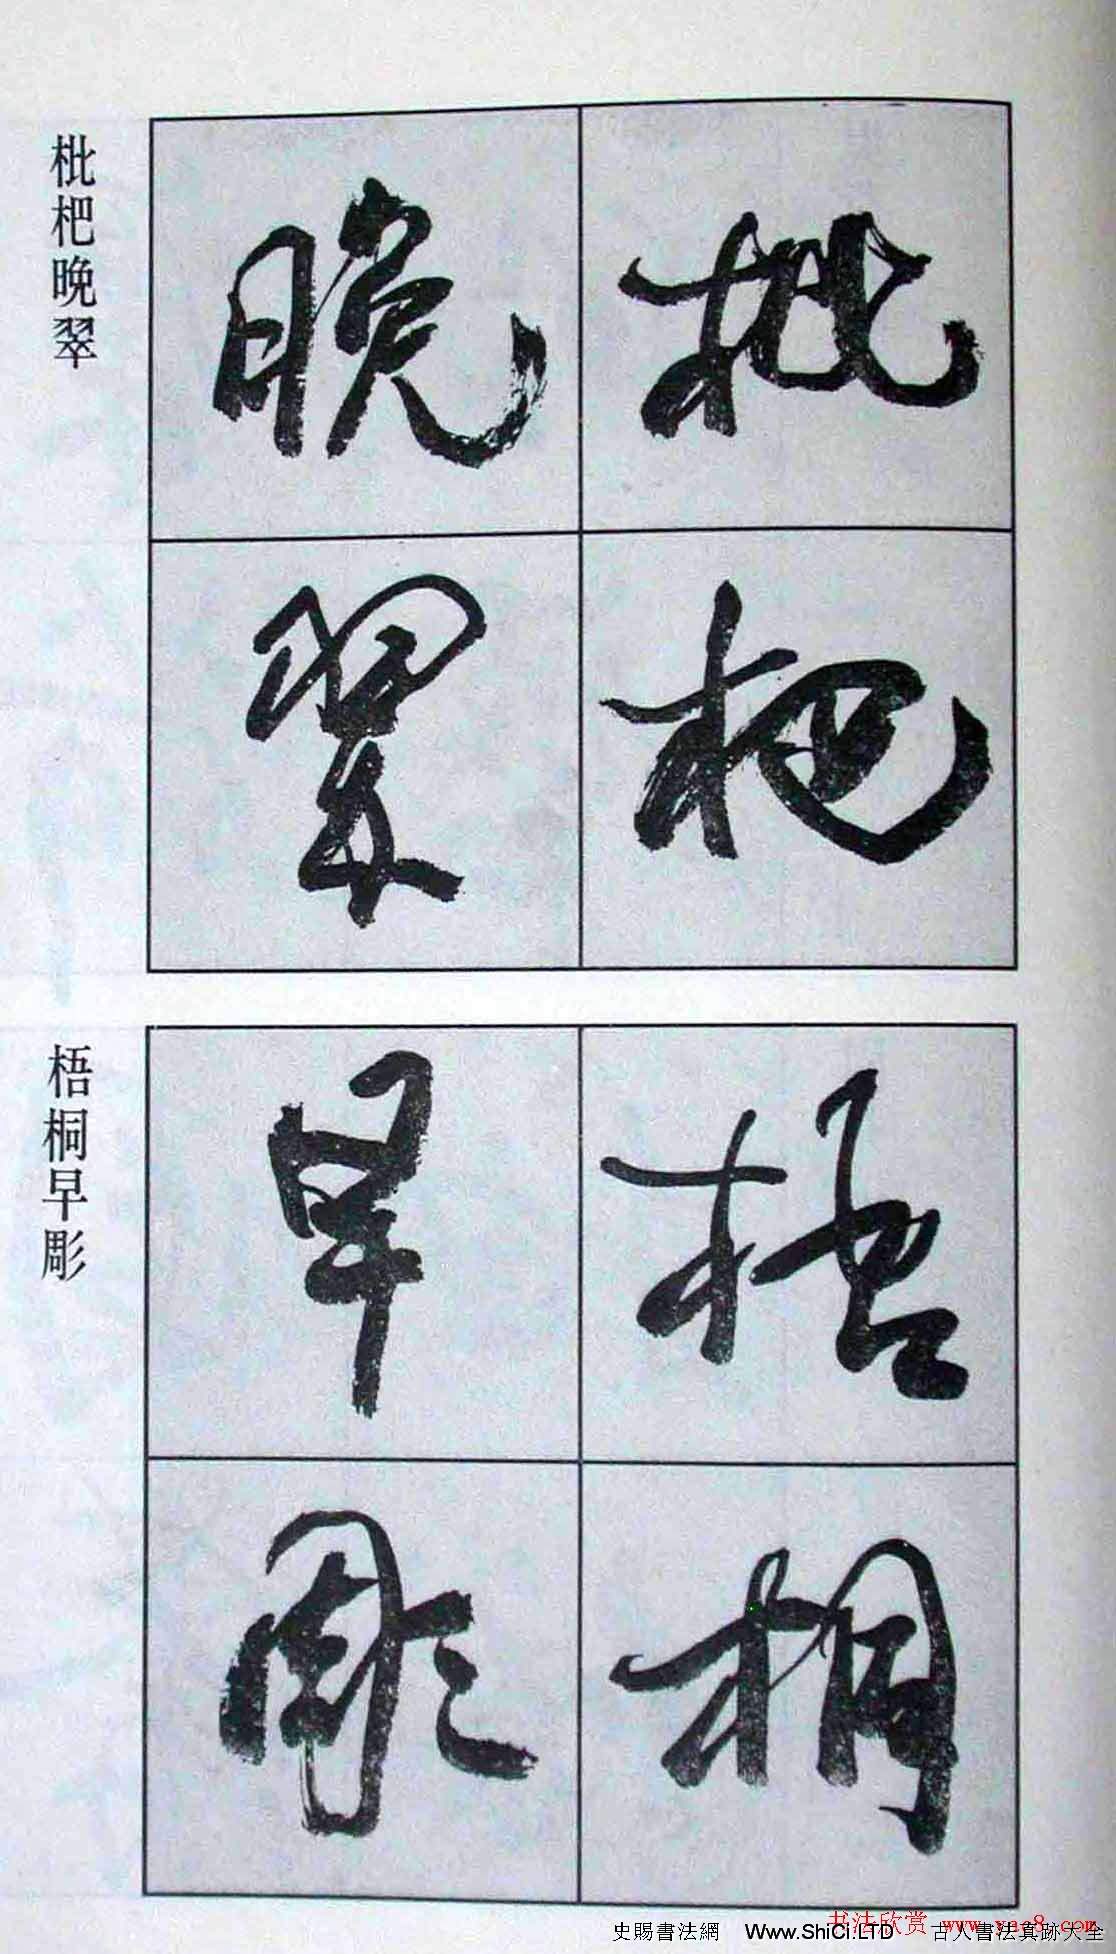 枇杷晚翠
枇杷
晚翠
梧桐早彫
梧桐
早彫
书法欣赏 www.yac8.com
史賜書法網 Www.ShiCi.LTD 古人書法真跡大全